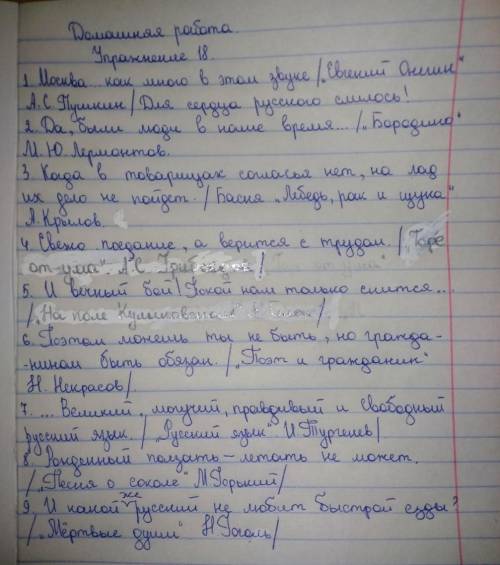 Домашняя работа.
Упражнение 18.
1. Москва... как много в этом звуке /„Евгений Онегин"
А.С. Пушкин/ Для сердца русского слилось!
2. Да, были люди в наше время... /„Бородино"
М.Ю. Лермонтов.
3. Когда в товарищах согласья нет, на лад
их дело не пойдет. /Басня „Лебедь, рак и щука"
А. Крылов.
4. Свежо предание, а верится с трудом. /„Горе
от ума" А.С. Грибоедов/
5. И вечный бой! Покой нам только снится...
/„На поле Куликовом"
6. Поэтом можешь ты не быть, но гражда-
-нином быть обязан. /„Поэт и гражданин"
Н. Некрасов/
7. ... Великий, могучий, правдивый и свободный
русский язык. /„Русский язык" И. Тургенев/
8. Рожденный ползать – летать не может.
/„Песня о соколе" М. Горький/
9. И какой же русский не любит быстрой езды?
/„Мёртвые души" Н. Гоголь/